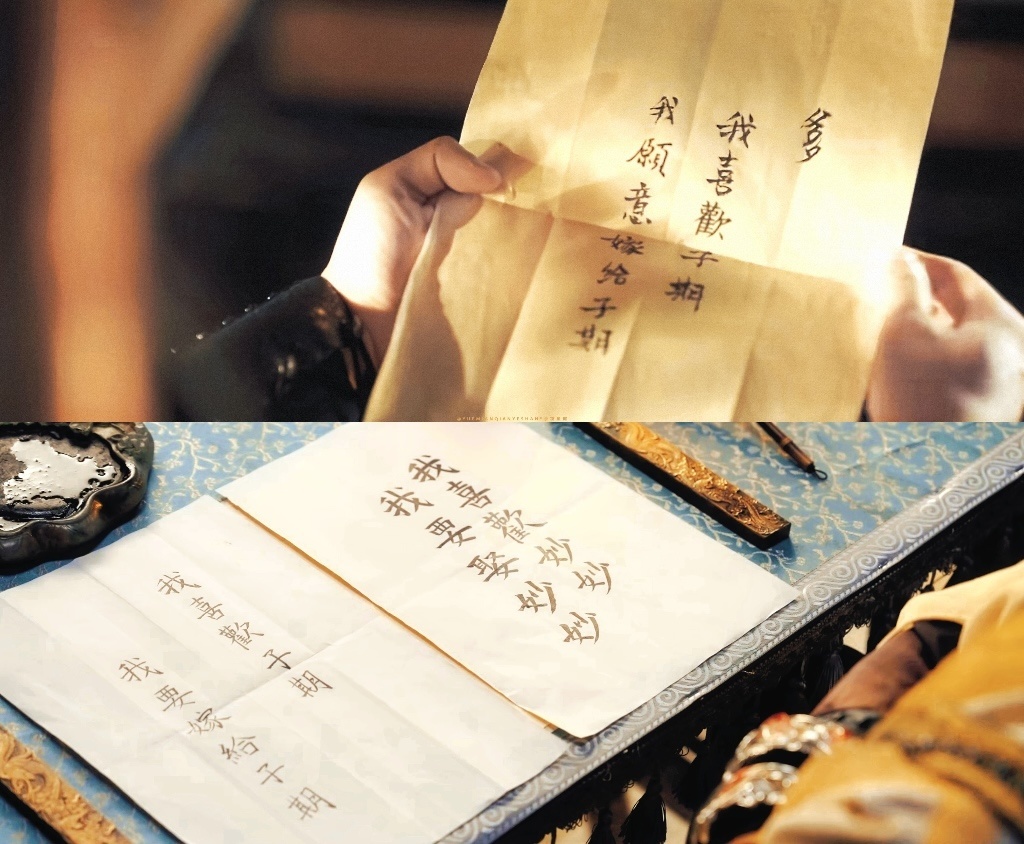 爹
我喜歡子期
我願意嫁給子期
我喜歡妙妙
我要娶妙妙
我喜歡子期
我要嫁給子期